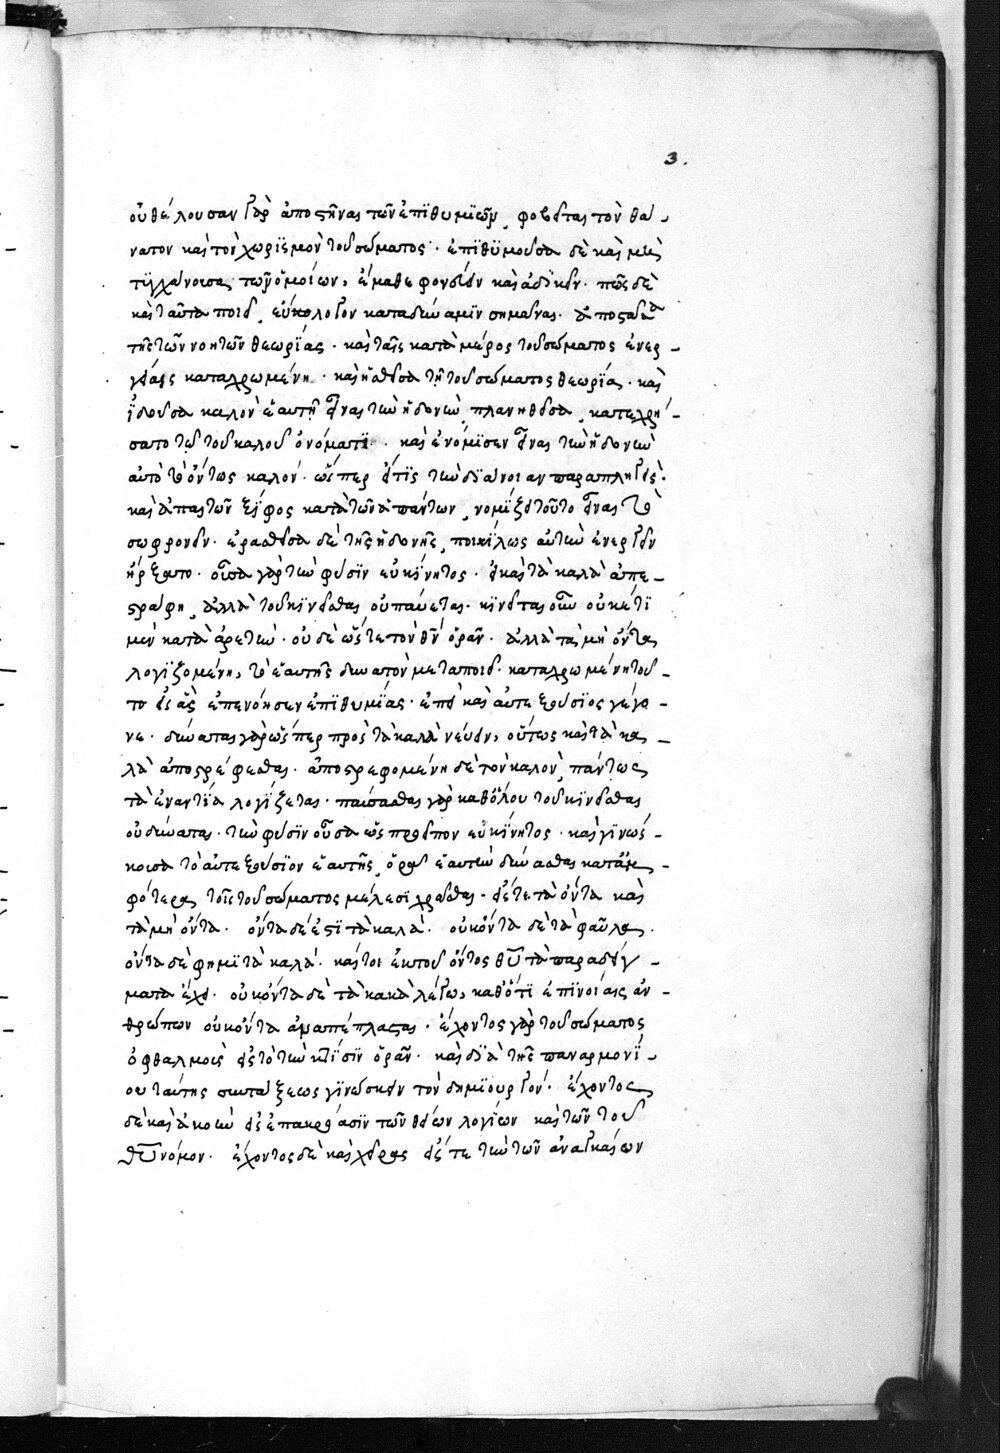 3.
οὐ θέλουσα γὰρ ἀποστῆναι τῶν ἐπιθυμιῶν, φοβεῖται τὸν θά-
νατον καὶ τὸν χωρισμὸν τοῦ σώματος· ἐπιθυμοῦσα δὲ καὶ μὴ
τυγχάνουσα τῶν ὁμοίων, ἔμαθε φονεύειν καὶ ἀδικεῖν. πῶς δὲ
καὶ ταῦτα ποιεῖ, εὔκολον καταδύναμιν σημᾶναι. ἀποστᾶσα
τῆς τῶν νοητῶν θεωρίας· καὶ ταῖς κατὰ μέρος τοῦ σώματος ἐνερ-
γείαις καταχρωμένη· καὶ ἡσθεῖσα τῇ τοῦ σώματος θεωρίᾳ· καὶ
ἰδοῦσα καλὸν ἑαυτῇ εἶναι τὴν ἡδονὴν, πλανηθεῖσα, κατεχρή-
σατο τῷ τοῦ καλοῦ ὀνόματι· καὶ ἐνόμισεν εἶναι τὴν ἡδονὴν
αὐτὸ τὸ ὄντως καλόν· ὥσπερ εἴ τις τὴν διάνοιαν παραπληγείς·
καὶ ἀπαιτῶν ξίφος κατὰ τῶν ἀπάντων, νομίζει τοῦτο εἶναι τὸ
σωφρονεῖν. ἐρασθεῖσα δὲ τῆς ἡδονῆς, ποικίλως αὐτὴν ἐνεργεῖν
ἤρξατο· οὖσα γὰρ τὴν φύσιν εὐκίνητος· εἰ καὶ τὰ καλὰ ἀπε-
στράφη, ἀλλὰ τοῦ κινεῖσθαι οὐ παύεται· κινεῖται οὖν οὐκέτι
μὲν κατὰ ἀρετὴν· οὐδὲ ὥστε τὸν θν ὁρᾶν· ἀλλὰ τὰ μὴ ὄντα
λογιζομένη, τὸ ἑαυτῆς δυνατὸν μεταποιεῖ· καταχρωμένη τού-
τῳ εἰς ἃς ἐπενόησεν ἐπιθυμίας· ἐπεὶ καὶ αὐτεξούσιος γέγο-
νε· δύναται γὰρ ὥσπερ πρὸς τὰ καλὰ νεύειν, οὕτως καὶ τὰ κα-
λὰ ἀποστρέφεσθαι. ἀποστρεφομένη δὲ τὸν καλὸν, πάντως
τὰ ἐναντία λογίζεται· παύσασθαι γὰρ καθόλου τοῦ κινεῖσθαι
οὐ δύναται· τὴν φύσιν οὖσα ὡς προεῖπον εὐκίνητος· καὶ γινώσ-
κουσα τὸ αὐτεξούσιον ἑαυτῆς, ὁρᾷ ἑαυτὴν δύνασθαι κατ' ἀμ-
φότερα τοῖς τοῦ σώματος μέλεσι χρᾶσθαι· εἴς τε τὰ ὄντα καὶ
τὰ μὴ ὄντα. ὄντα δέ ἐστι τὰ καλά. οὐκ ὄντα δὲ τὰ φαῦλα.
ὄντα δὲ φημὶ τὰ καλά. καθότι ἐκ τοῦ ὄντος θυ τὰ παραδείγ-
ματα ἔχει. οὐκ ὄντα δὲ τὰ κακὰ λέγω, καθότι ἐπινοίαις ἀν-
θρώπων οὐκ ὄντα ἀναπέπλασται. ἔχοντος γὰρ τοῦ σώματος
ὀφθαλμοὺς εἰς τὸ τὴν κτίσιν ὁρᾶν· καὶ διὰ τῆς παναρμονί-
ου ταύτης συντάξεως γινώσκειν τὸν δημιουργόν. ἔχοντος
δὲ καὶ ἀκοὴν εἰς ἐπακρόασιν τῶν θείων λογίων καὶ τῶν τοῦ
θυ νόμων. ἔχοντος δὲ καὶ χεῖρας εἴς τε τὴν τῶν ἀναγκαίων